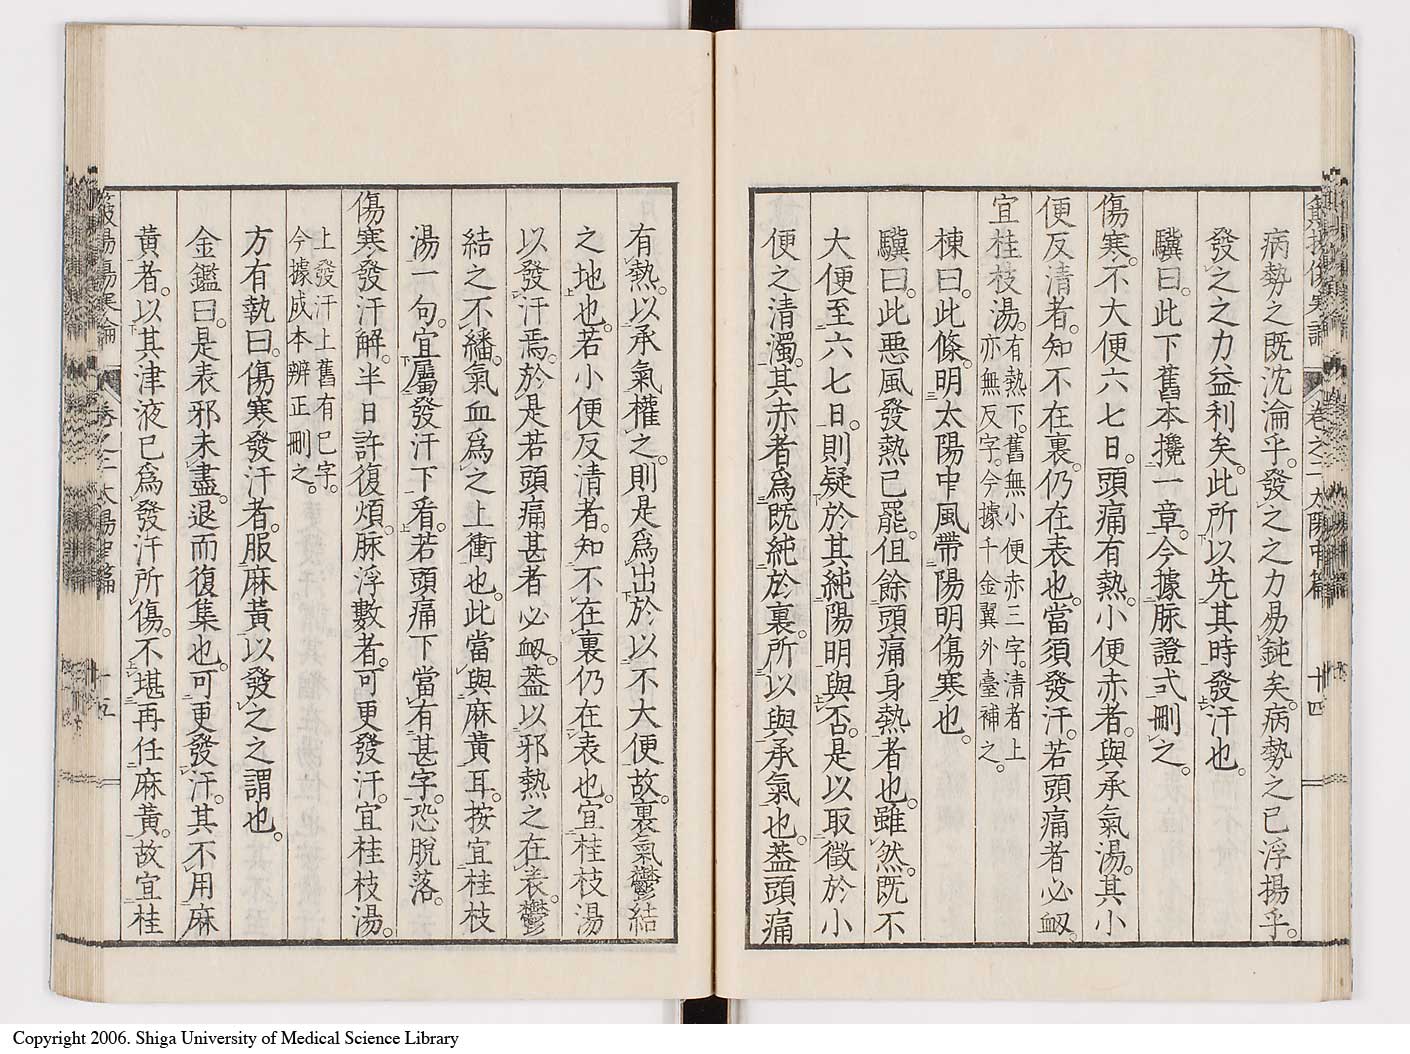 病勢之既沈淪乎。發之之力易鈍矣。病勢之已浮揚乎。
發之之力益利矣。此所以先其時發汗也。
驥曰。此下舊本攙一章。今據脈證式刪之。
傷寒。不大便六七日。頭痛有熱。小便赤者。與承氣湯。其小
便反清者。知不在裏。仍在表也。當須發汗。若頭痛者必衂。
宜桂枝湯。有熱下。舊無小便赤三字。清者上
亦無反字。今據千金翼外臺補之。
棟曰。此條。明太陽中風帶陽明傷寒也。
驥曰。此惡風發熱已罷。但餘頭痛身熱者也。雖然。既不
大便至六七日。則疑於其純陽明與否。是以取徵於小
便之清濁。其赤者爲既純於裏。所以與承氣也。葢頭痛
卷之二 太陽中篇 十四
有熱。以承氣權之。則是爲出於以不大便故。裏氣鬱結
之地也。若小便反清者。知不在裏仍在表也。宜桂枝湯
以發汗焉。於是若頭痛甚者必衂。葢以邪熱之在表。鬱
結之不繙。氣血爲之上衝也。此當與麻黃耳。按宜桂枝
湯一句。宜屬發汗下看。若頭痛下當有甚字。恐脫落。
傷寒。發汗解。半日許復煩。脈浮數者。可更發汗。宜桂枝湯。
上發汗上舊有已字。
今據成本辨正刪之。
方有執曰。傷寒發汗者。服麻黃以發之之謂也。
金鑑曰。是表邪未盡。退而復集也。可更發汗。其不用麻
黃者。以其津液已爲發汗所傷。不堪再任麻黃。故宜桂
傷寒論 卷之二 太陽中篇 十五
Copyright 2006. Shiga University of Medical Science Library